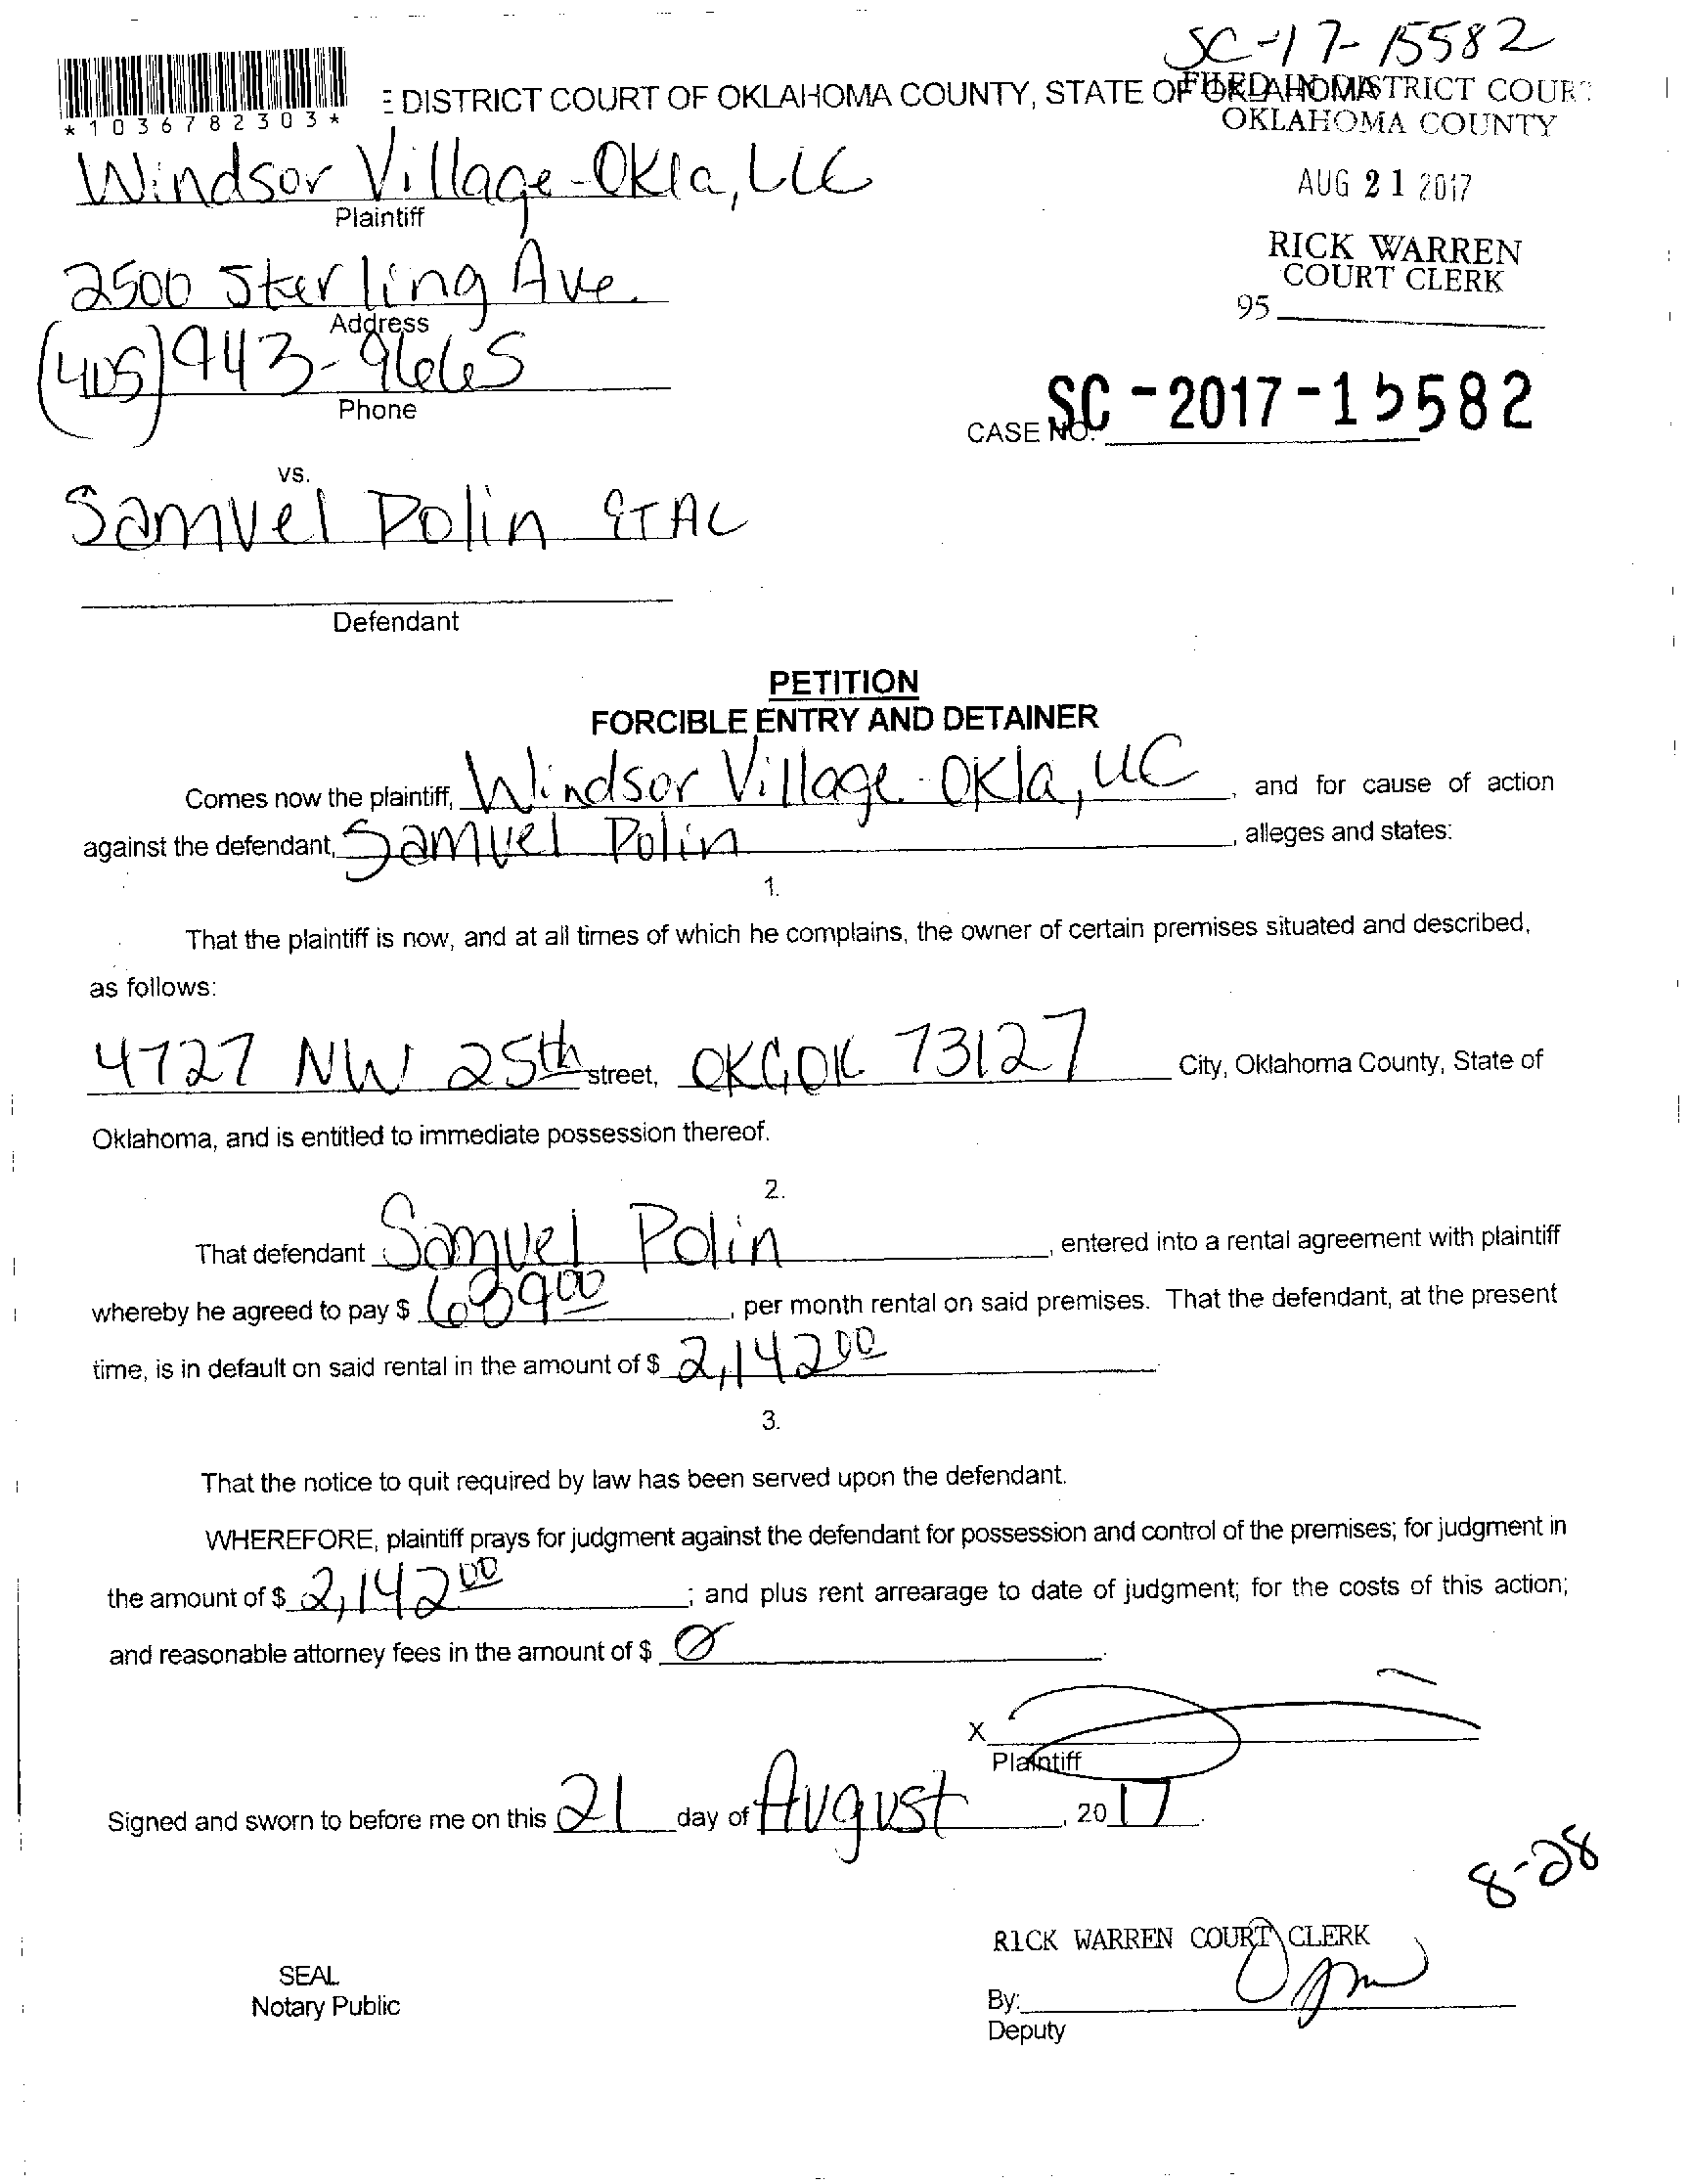 SC-17-15582
*1036782303*
E DISTRICT COURT OF OKLAHOMA COUNTY, STATE OF OKLAHOMA
FILED IN DISTRICT COURT
OKLAHOMA COUNTY
Windsor Village-Okla, LLC
Plaintiff
AUG 21 2017
RICK WARREN
COURT CLERK
95
2500 Sterling Ave.
Address
(405) 943-9665
Phone
CASE NO. SC-2017-15582
vs.
Samuel Polin ETAL
Defendant
PETITION
FORCIBLE ENTRY AND DETAINER
Comes now the plaintiff, Windsor Village-Okla, LLC, and for cause of action
against the defendant, Samuel Polin, alleges and states:
1.
That the plaintiff is now, and at all times of which he complains, the owner of certain premises situated and described,
as follows:
4727 NW 25th street, OKC, OK 73127 City, Oklahoma County, State of
Oklahoma, and is entitled to immediate possession thereof.
2.
That defendant Samuel Polin, entered into a rental agreement with plaintiff
whereby he agreed to pay $ 00, per month rental on said premises. That the defendant, at the present
time, is in default on said rental in the amount of $ 2,142 00.
3.
That the notice to quit required by law has been served upon the defendant.
WHEREFORE, plaintiff prays for judgment against the defendant for possession and control of the premises; for judgment in
the amount of $ 2,142 00; and plus rent arrearage to date of judgment; for the costs of this action;
and reasonable attorney fees in the amount of $ Ø.
X
Plaintiff
Signed and sworn to before me on this 21 day of August, 2017.
8-28
RICK WARREN COURT CLERK
SEAL
Notary Public
By:
Deputy